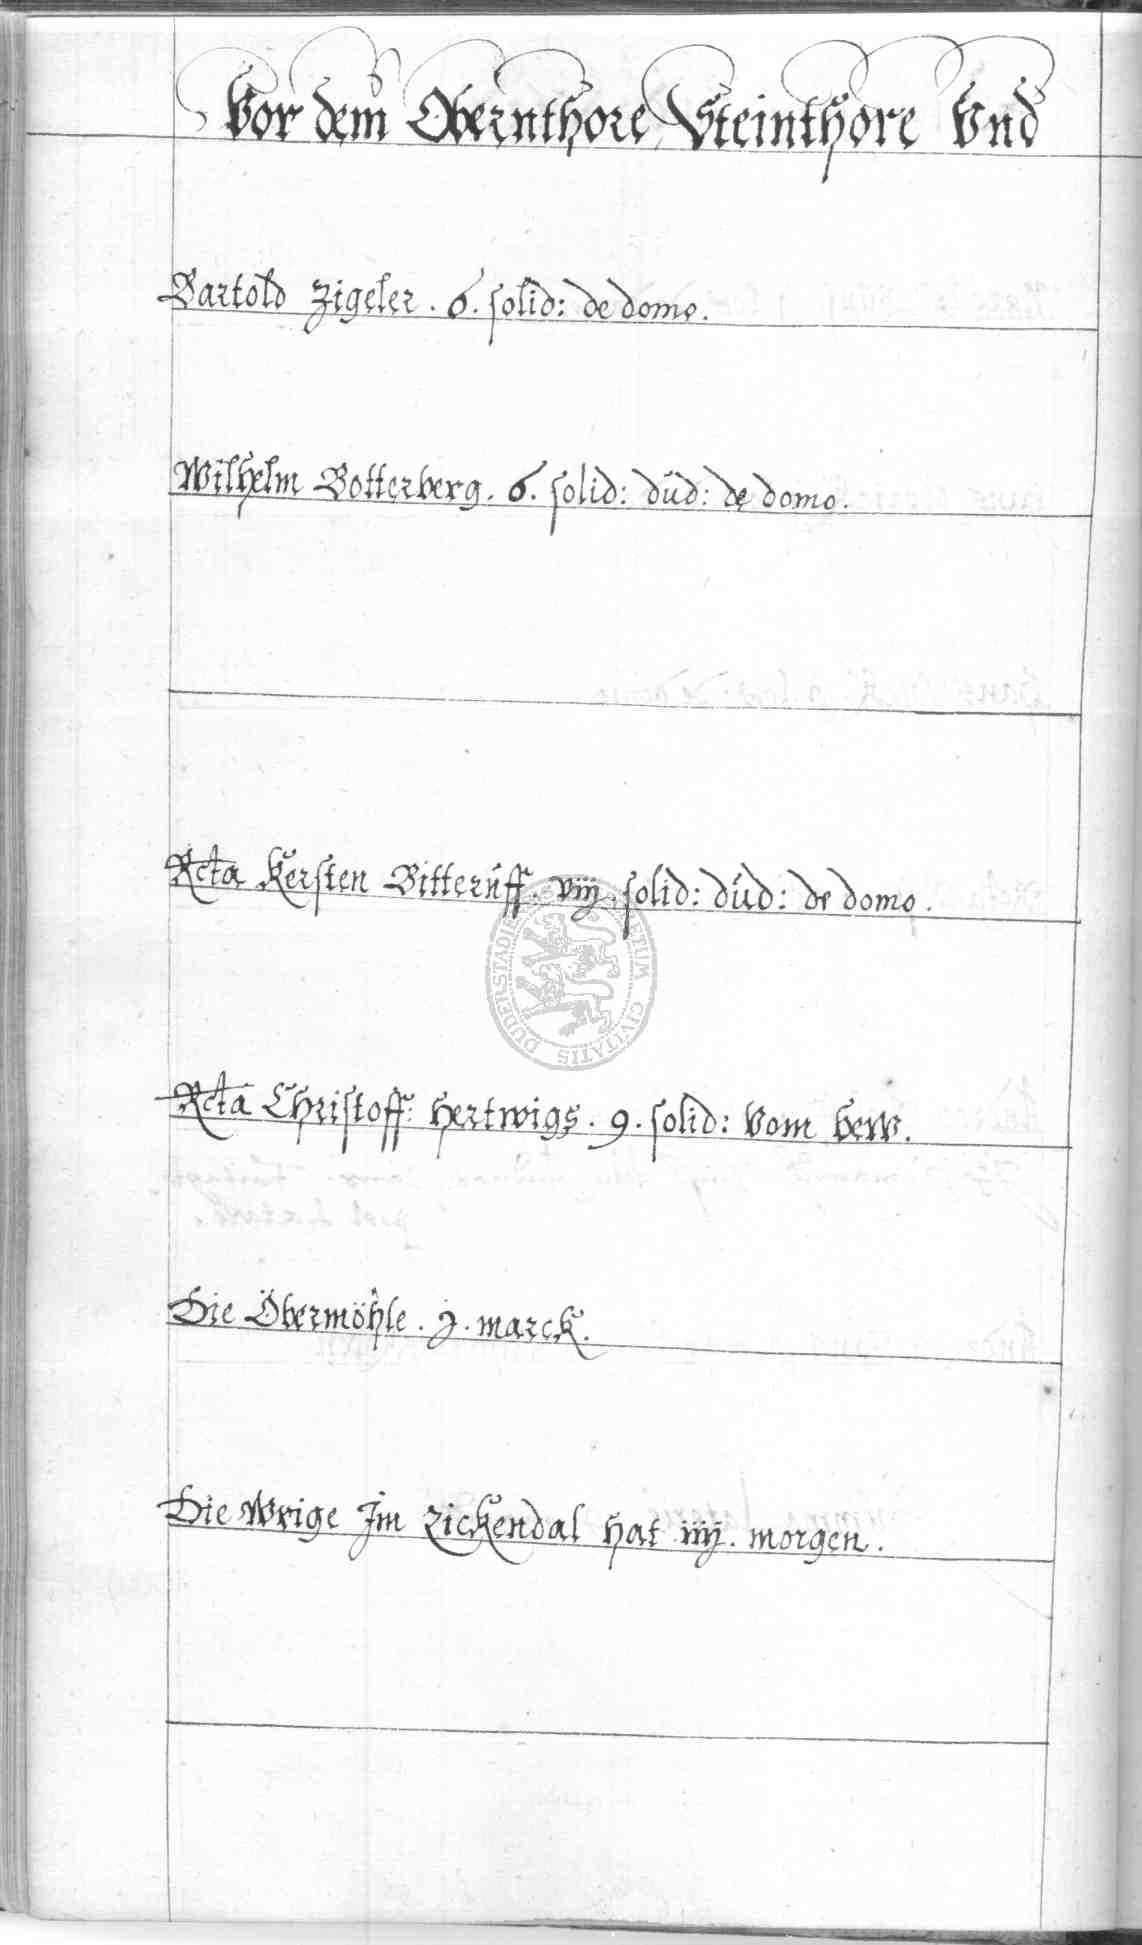 Vor dem Obernthore, Steinthore Vnd
Bartold Zigeler . 6 . solid: de domo.
Wilhelm Botterberg . 6 . solid: düd: de domo.
Rcta Kersten Bitterüff . viij . solid: düd: de domo .
Rcta Christoff: Hertwigs . 9 . solid: Vom
Die Öbermöhle . j . marck.
Die Wrige Im Zickendal hat iiij . morgen .
DUDERSTADIENSIS CIVITATIS